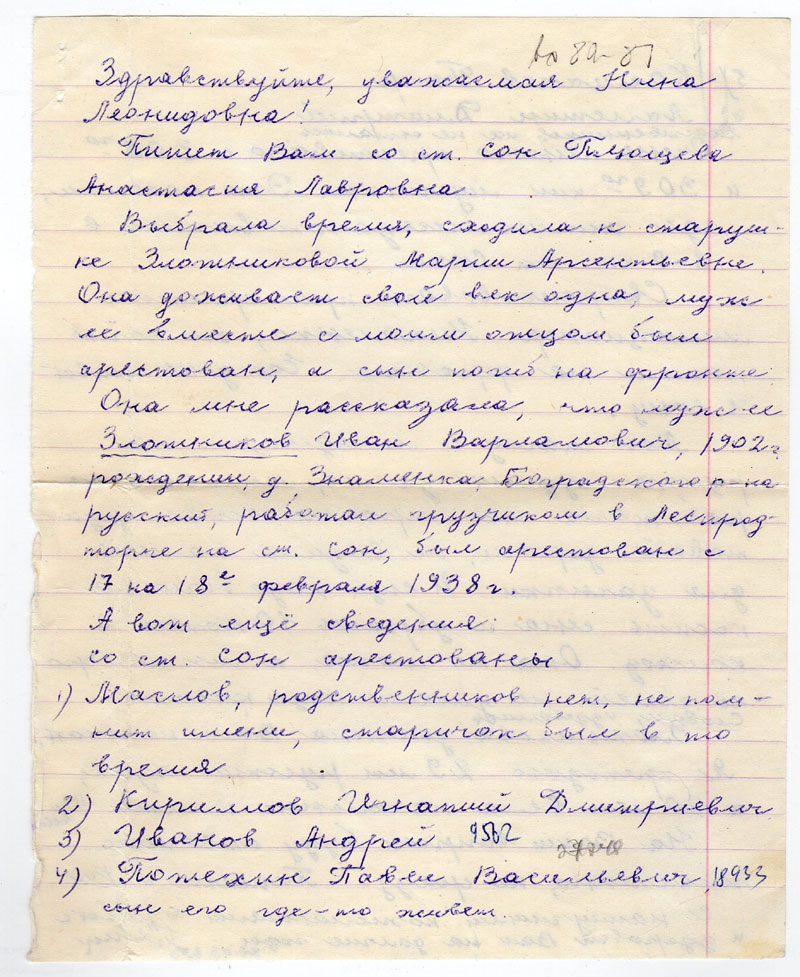 Здравствуйте, уважаемая Нина
Леонидовна!
Пишет Вам со ст. Сон
Анастасия Лавровна.
Выбрала время, сходила к старуш-
ке Зложниковой Марии Арсентьевне.
Она доживает свой век одна, муж
её вместе с моим отцом был
арестован, а сын погиб на фронте.
Она мне рассказала, что муж ее
Зложников Иван Варламович, 1902 г.
рождения, д. Знаменка, Боградского р-на
русский, работал грузчиком в Леспрод-
торге на ст. Сон, был арестован с
17 на 18е февраля 1938 г.
А вот ещё сведения:
со ст. Сон арестованы
1) Маслов, родственников нет, не пом-
нит имени, старичок был в то
время.
2) Кириллов Игнатий Дмитриевич
3) Иванов Андрей
4) Пожехин Павел Васильевич,
сын его где-то живет.